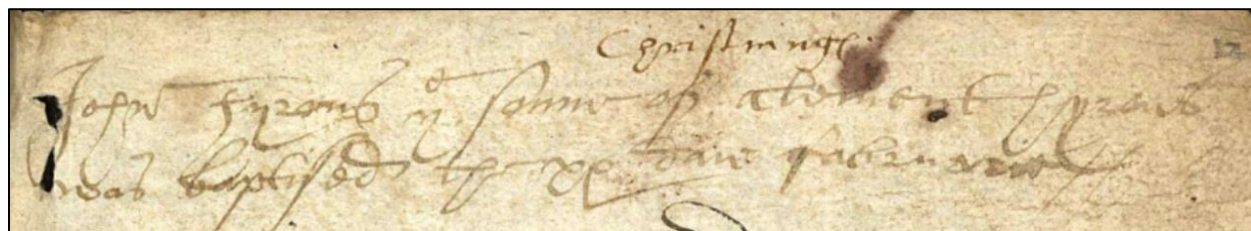 Christnings
12
John Hyrons ye sonne of Clement Hyrons
was baptised the xx daie februarie